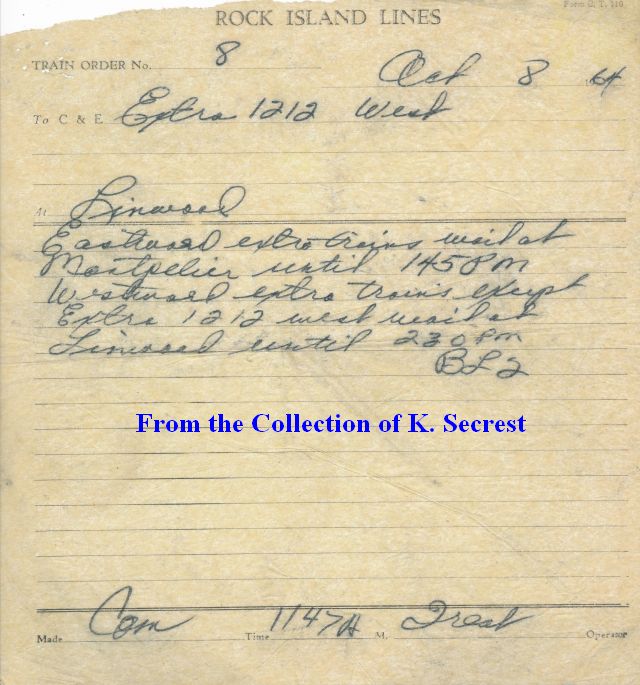 Form G. T. 110
ROCK ISLAND LINES
TRAIN ORDER No. 8
Oct 8 1964
To C & E Extra 1212 West
At Linwood
Eastward extra trains wait at
Montpelier until 145 PM
Westward extra trains except
Extra 1212 west wait at
Linwood until 230 PM
From the Collection of K. Secrest
Made Com Time 1147 A M. Operator